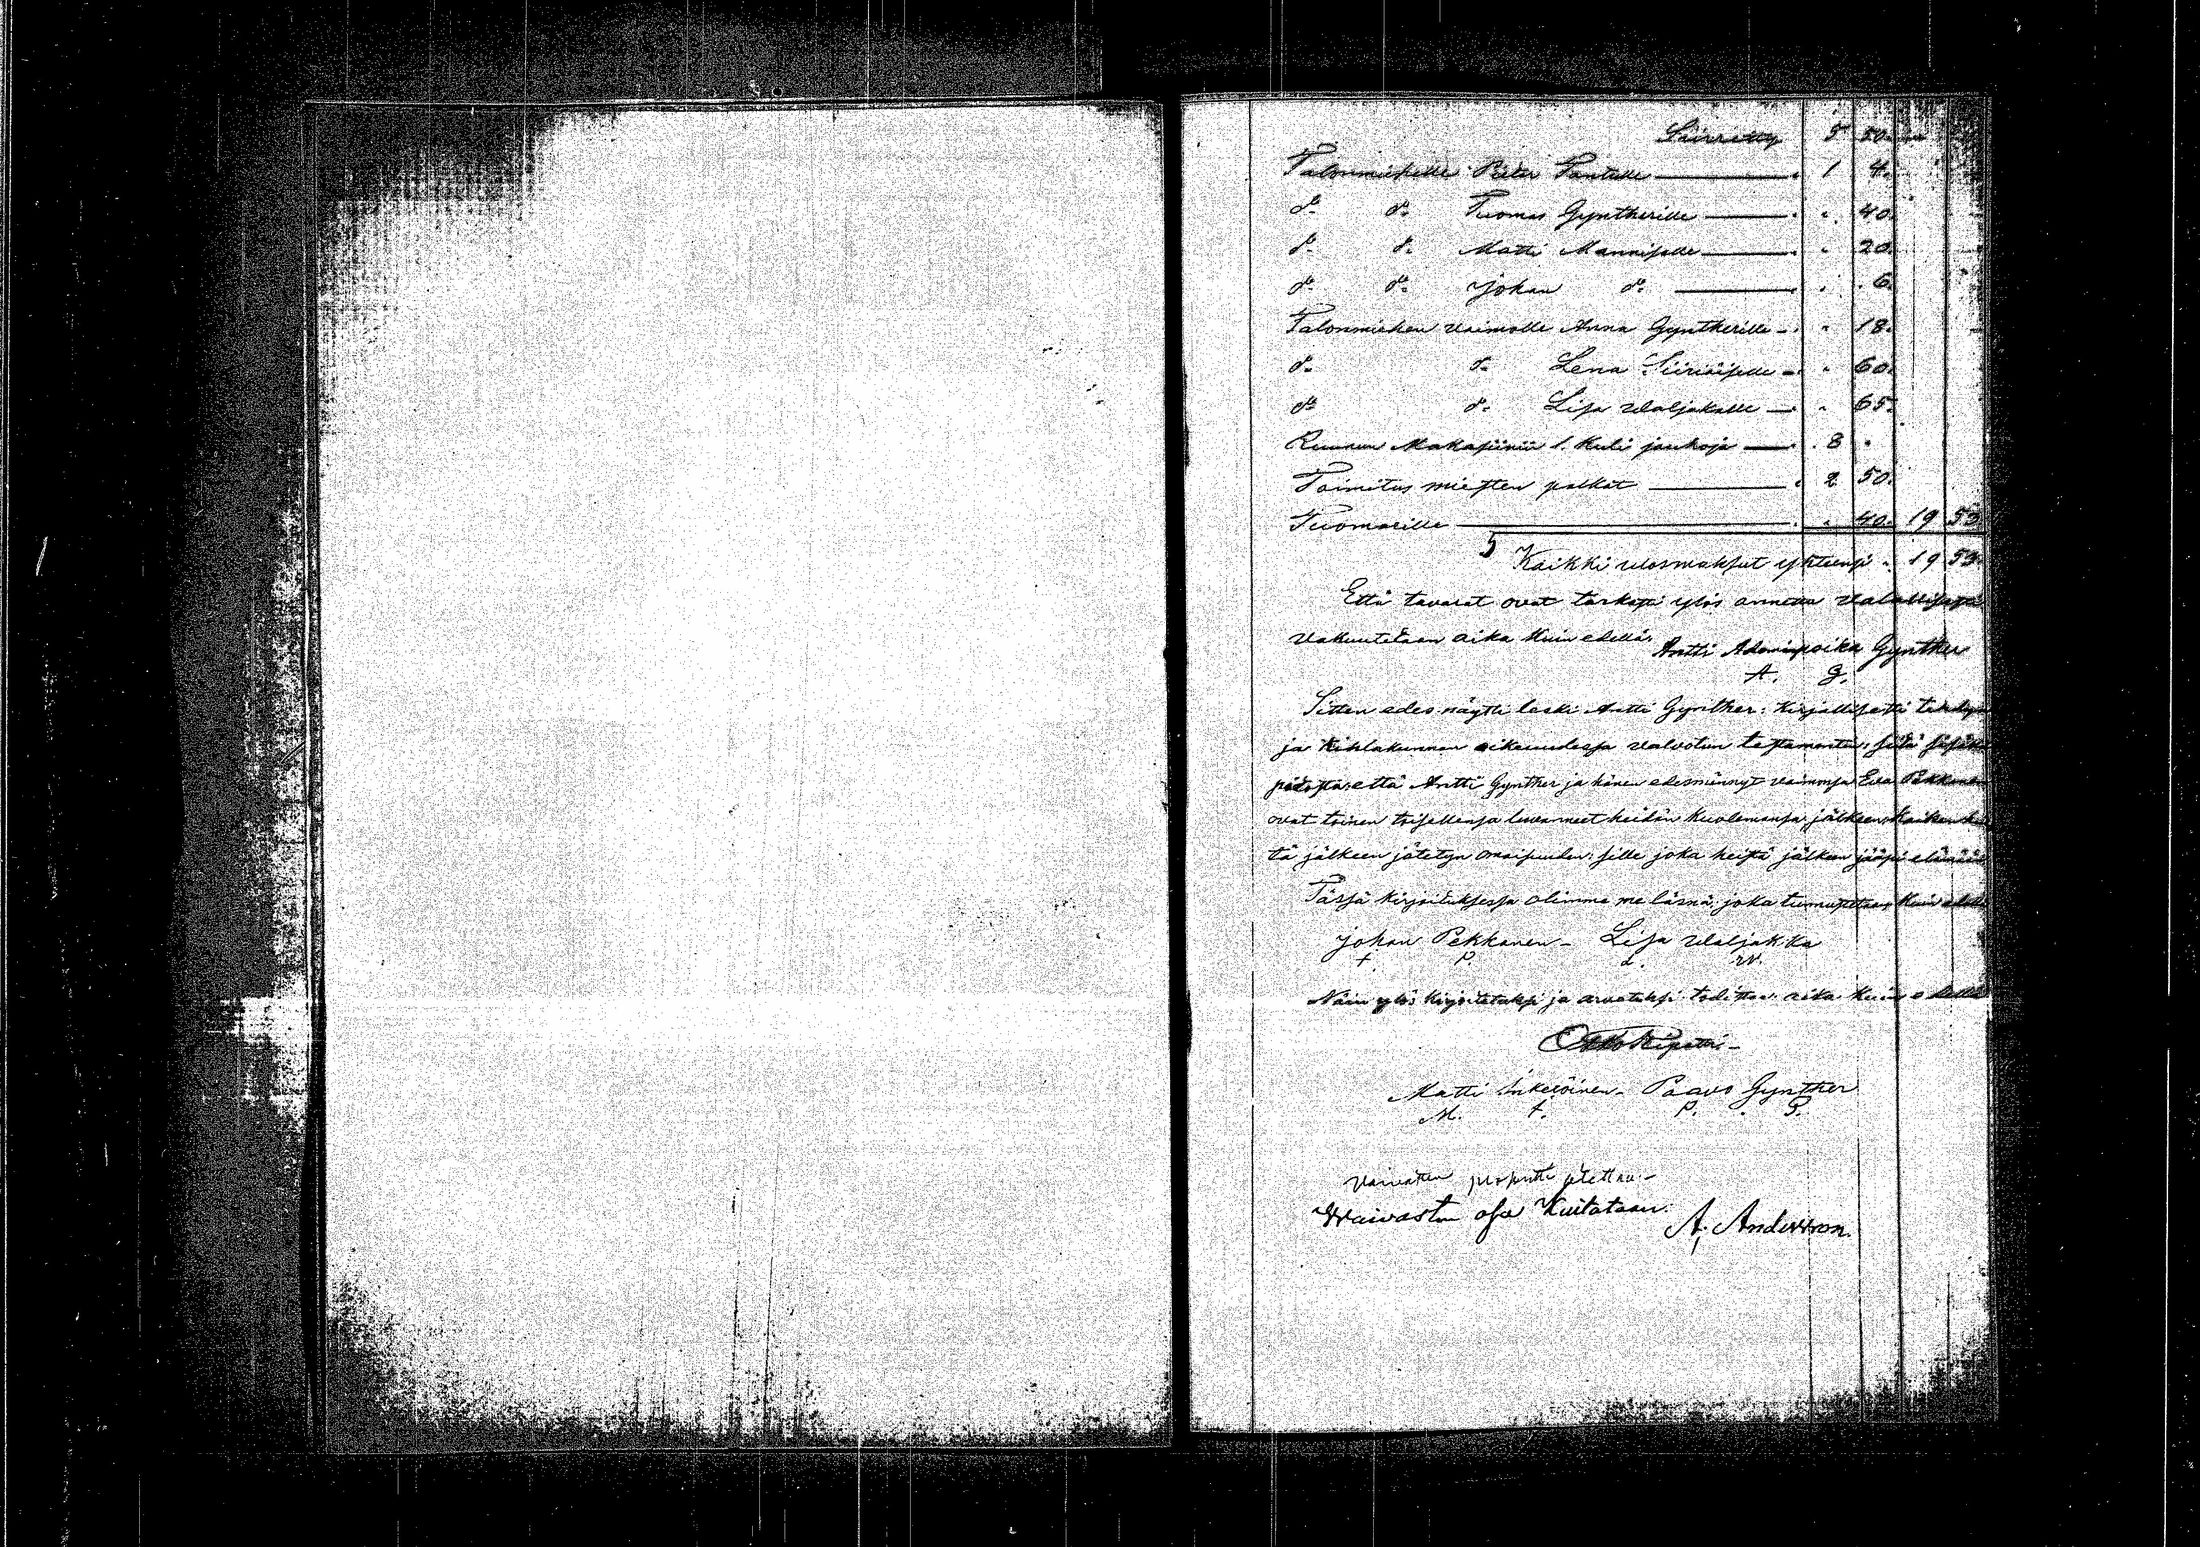 Siirretty 5 50
Talonmiehelle Pieter Pantille 1 4.
do do Tuomas Gyntherille " 40.
do do Matti Manniselle " 20.
do do Johan do " 6.
Talonmiehen vaimolle Anna Gyntherille " 18.
do do Lena " 60.
do do Lisa Waljakalle " 65.
Ruunun Makasiiniin 1. Kuli jauhoja 8 "
Toimitus miesten palkat 2 50.
Tuomarille " 40. 19 53
Kaikki ulosmaksut yhteensä " 19 53.
Että tavarat ovat tarkasti ylös annettu valallisesti
vakuutetaan aika kuin edellä.
Antti Adaminpoika Gynther
A. G.
Sitten edes näytti leski Antti Gynther: kirjallisesti tehdyn
ja kihlakunnan oikeudessa valvotun testamentin:
että Antti Gynther ja hänen edesmännyt vaimonsa Eva Pekkanen
ovat toinen toisellensa luvanneet heidän kuolemansa jälkeen
tä jälkeen jätetyn omaisuuden: sille joka heistä jälkeen jääpi elämään
Tässä kirjoituksessa olimme me läsnä, joka tunnustetaan kuin edellä
Johan Pekkanen - Lisa Waljakka
+ P. L. W.
Näin ylös kirjoitetuksi ja arvatuksi todistaa: aika kuin edellä
Matti Inkeröinen - Paavo Gynther
M. +. P. G.
Vaivasten prosentti otettu
Waivastun osa Kuitataan:
A. Andersson.